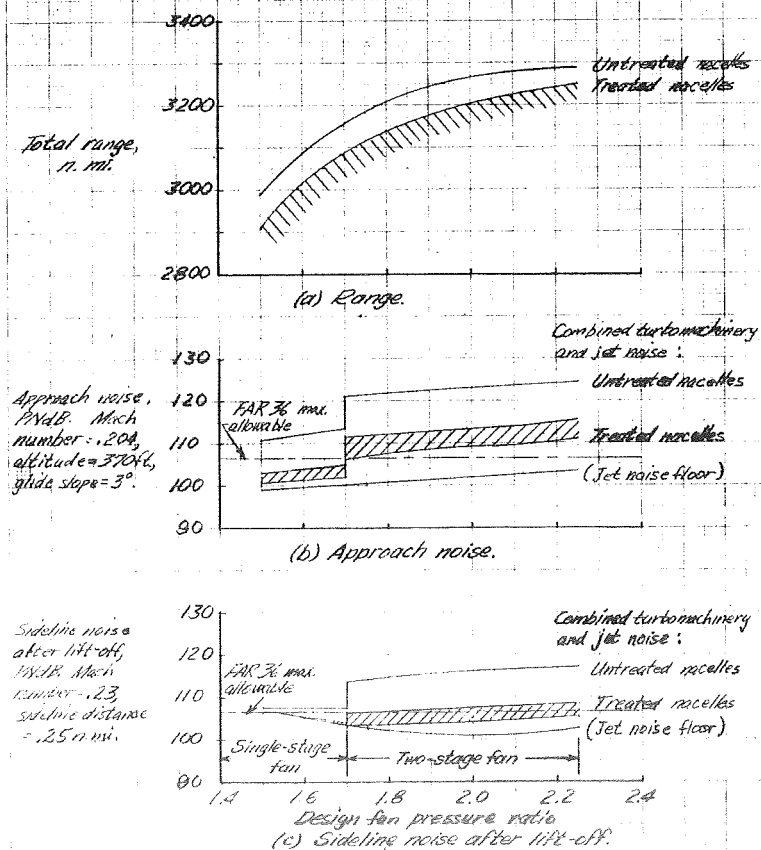 3400
3200
3000
2800
Total range,
n. mi.
Untreated nacelles
Treated nacelles
(a) Range.
130
120
110
100
90
Approach noise,
PNdB. Mach
number = .204,
altitude = 370 ft,
glide slope = 3°.
FAR 36 max.
allowable
Combined turbomachinery
and jet noise :
Untreated nacelles
Treated nacelles
(Jet noise floor)
(b) Approach noise.
130
120
110
100
90
Sideline noise
after lift-off,
PNdB. Mach
number = .23,
sideline distance
= .25 n. mi.
FAR 36 max.
allowable
Combined turbomachinery
and jet noise :
Untreated nacelles
Treated nacelles
(Jet noise floor)
Single-stage
fan
Two-stage fan
1.4 1.6 1.8 2.0 2.2 2.4
Design fan pressure ratio
(c) Sideline noise after lift-off.